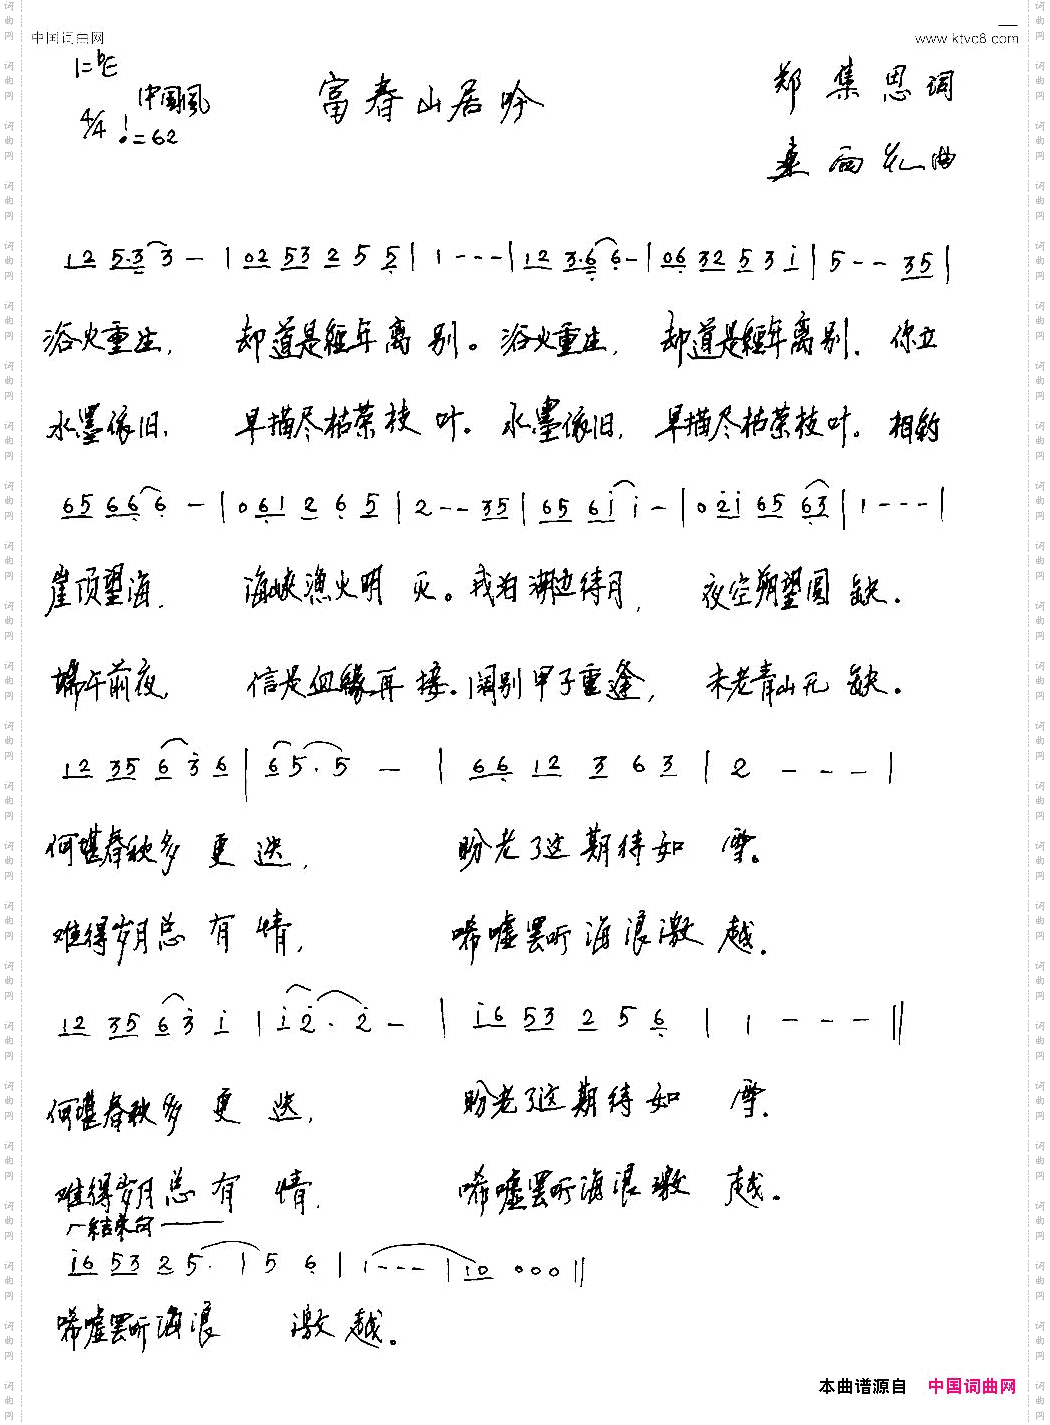 中国词曲网
www.ktvc8.com
1=bE
中国风
4/4 ♩=62
富春山居吟
郑集思词
桑雨花曲
12 5·3 3 - | 02 53 2 5 5 | 1 - - - | 12 3·6 6 - | 06 32 5 3 i | 5 - - 35 |
浴火重生， 却道是經年离别。浴火重生， 却道是經年离别。你立
水墨依旧， 早描尽枯荣枝叶。水墨依旧， 早描尽枯荣枝叶。相约
65 66 6 - | 0 61 2 6 5 | 2 - - 35 | 65 6i i - | 0 2i 65 63 | 1 - - - |
崖顶望海， 海峡渔火明灭。我泊湖边待月， 夜空朔望圆缺。
端午前夜 信是血緣再接。阔别甲子重逢， 未老青山无缺。
12 35 6 3 6 | 6 5 · 5 - | 66 12 3 6 3 | 2 - - - |
何堪春秋多更迭， 盼老了这期待如雪。
难得岁月总有情， 唏嘘罢听海浪激越。
12 35 6 3 i | i 2 · 2 - | i6 53 2 5 6 | 1 - - - ||
何堪春秋多更迭， 盼老了这期待如雪。
难得岁月总有情， 唏嘘罢听海浪激越。
结束句
i6 53 2 5 · | 5 6 | 1 - - - | 10 000 ||
唏嘘罢听海浪 激越。
本曲谱源自 中国词曲网